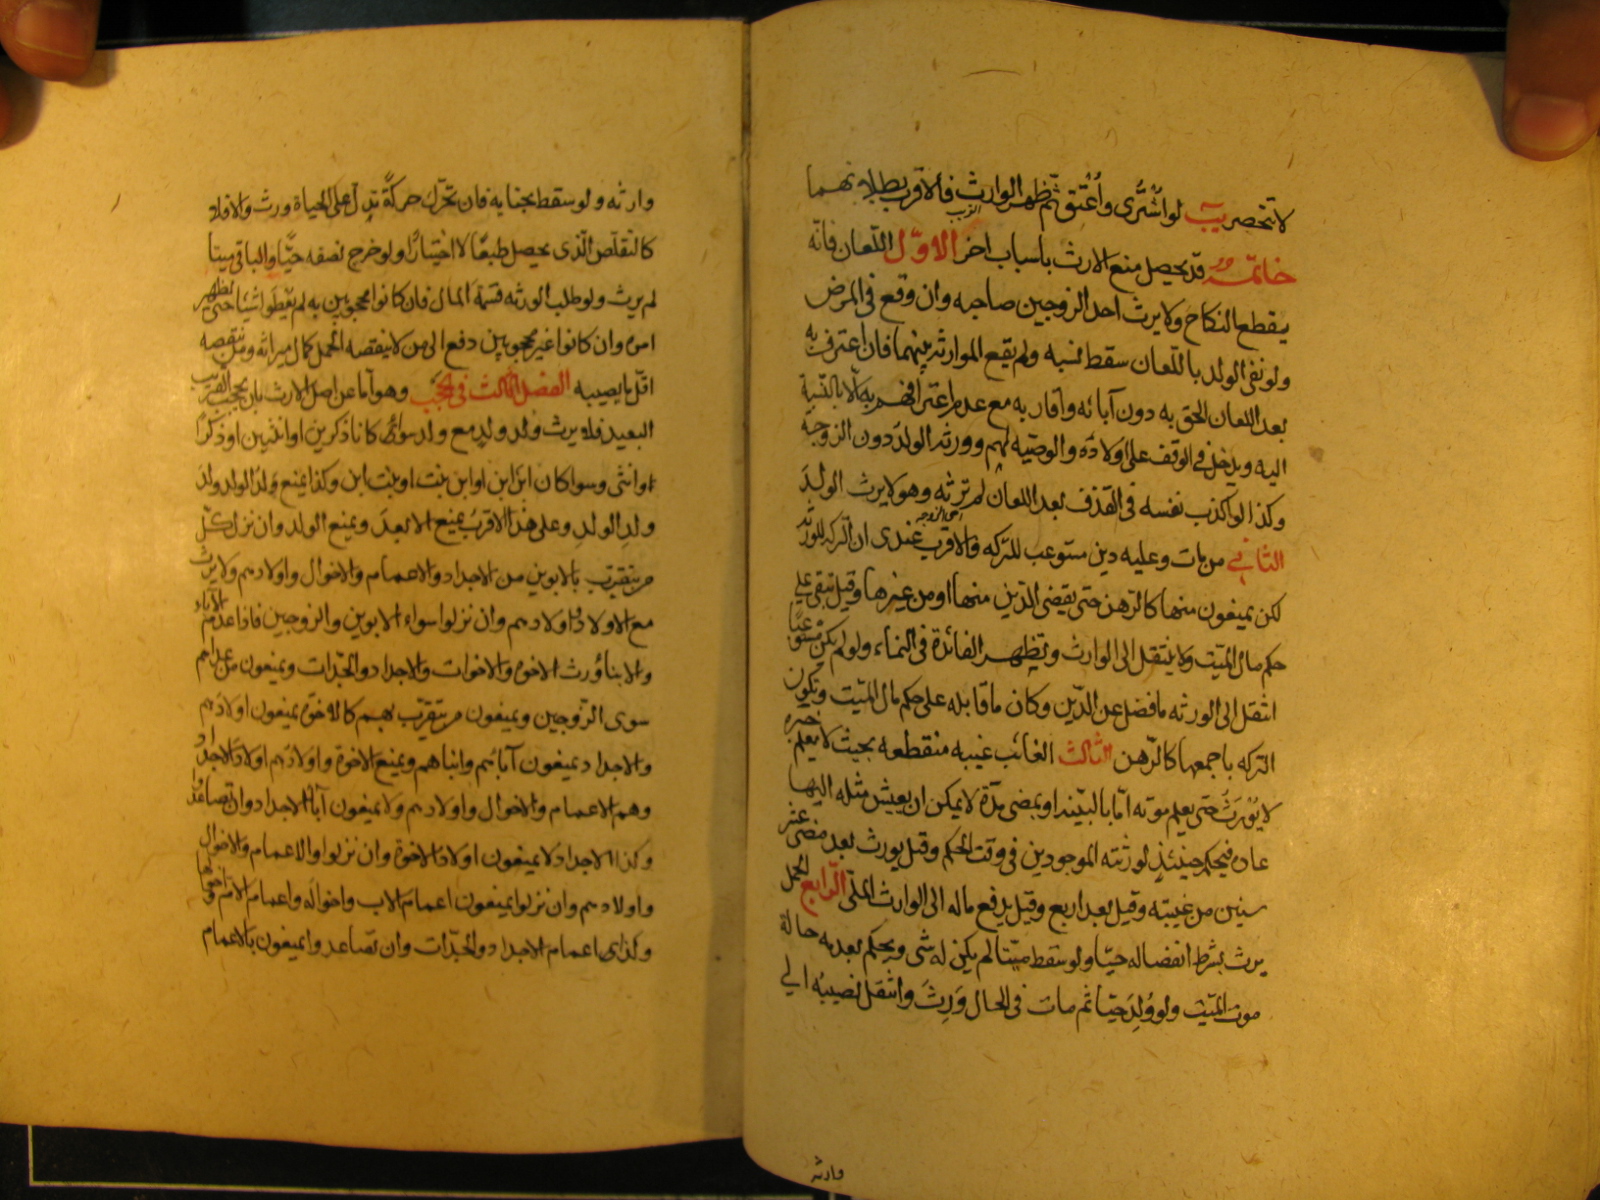 لا تخصر يب لو اشترى واُعتق ثم ظهر الوارث فالاقرب بطلانهما
خاتمة قد يحصل منع الارث باسباب اخر الاوّل اللّعان فانّه
يقطع النكاح ولا يرث احد الزوجين صاحبه وان وقع في المرض
ولو نفى الولد باللّعان سقط نسبه ولم يقع الموارثه بينهما فان اعترف به
بعد اللعان الحق به دون آبائه واقاربه مع عدم اعترافهم به الا بالنّسبة
اليه ويدخل في الوقف على اولاده والوصيّه لهم وورثه الولد دون الزوجة
وكذا لو اكذب نفسه في القذف بعد اللعان لم ترثه وهو لا يرث الولدَ
الثاني من مات وعليه دين مستوعب للتركه فالاقرب عندى ان التركه للورثه
لكن يمنعون منها كالرّهن حتى يقضى الدّين منها او من غيرها وقيل تبقى على
حكم مال الميّت ولا ينتقل الى الوارث وتظهر الفائدة في النماء ولو لم يكن مستوعبًا
انتقل الى الورثه ما فضل عن الدّين وكان ما قابله على حكم مال الميّت وتكون
التركه باجمعها كالرّهن الثالث الغائب غيبه منقطعه بحيث لا يعلم خبره
لا يُورَثُ حتى يعلم موته امّا بالبيّنه او بمضى مدّة لا يمكن ان يعيش مثله اليها
عادة فيحكم حينئذٍ لورثته الموجودين في وقت الحكم وقيل يورث بعد مضى عشر
سنين من غيبته وقيل بعد اربع وقيل يدفع ماله الى الوارث الملىّ الرّابع الحمل
يرث بشرط انفصاله حيّا ولو سقط ميّتا لم يكن له شى ويحكم بعد به حالة
موت الميّت ولو وُلِدَ حيّا ثم مات في الحال وَرِثَ وانتقل نصيبُه الى
وارثه
وارثه ولو سقط بجنايه فان تحرّك حركةً تدل على الحياة ورث والا فلا
كالتقلّص الّذى يحصل طبعًا لا اختيارًا ولو خرج نصفه حيًّا والباقى ميتا
لم يرث ولو طلب الورثه قسمة المال فان كانوا محجوبين به لم يعطوا شيئا حتى يظهر
امره وان كانوا غير محجوبين دفع الى من لا ينقصه الحمل كمال ميراثه ومن ينقصه
اقلّ ما يصيبه الفصل الثالث في الحجب وهو اما عن اصل الارث بان يحجب القريب
البعيد فلا يرث ولد ولدٍ مع ولد سوآءٌ كانا ذكرين او انثيين او ذكرًا
او انثى وسوا كان ابن ابن او ابن بنت او بنت ابن وكذا يمنع وَلدُ الولدِ ولدَ
ولدِ الولدِ وعلى هذا الاقربُ يمنع الابعدَ ويمنع الولد وان نزل كلّ
من يتقرّب بالابوين من الاجداد والاعمام والاخوال واولادهم ولا يرث
مع الاولاد واولادهم وان نزلوا سواء الابوين والزوجين فاذا عدم الآباء
والابناء ورث الاخوه والاخوات والاجداد والجدّات ويمنعون من عداهم
سوى الزّوجين ويمنعون من يتقرّب بهم كالاخوه يمنعون اولادهم
والاجداد يمنعون آبائهم وابناهم ويمنع الاخوة واولادهم اولاد الاجداد
وهم الاعمام والاخوال واولادهم ولا يمنعون آباء الاجداد وان تصاعدوا
وكذا الاجداد لا يمنعون اولاد الاخوة وان نزلوا والاعمام والاخوال
واولادهم وان نزلوا يمنعون اعمام الاب واخواله واعمام الام واخوالها
وكذا اعمام الاجداد والجدّات وان تصاعدوا يمنعون بالاعمام